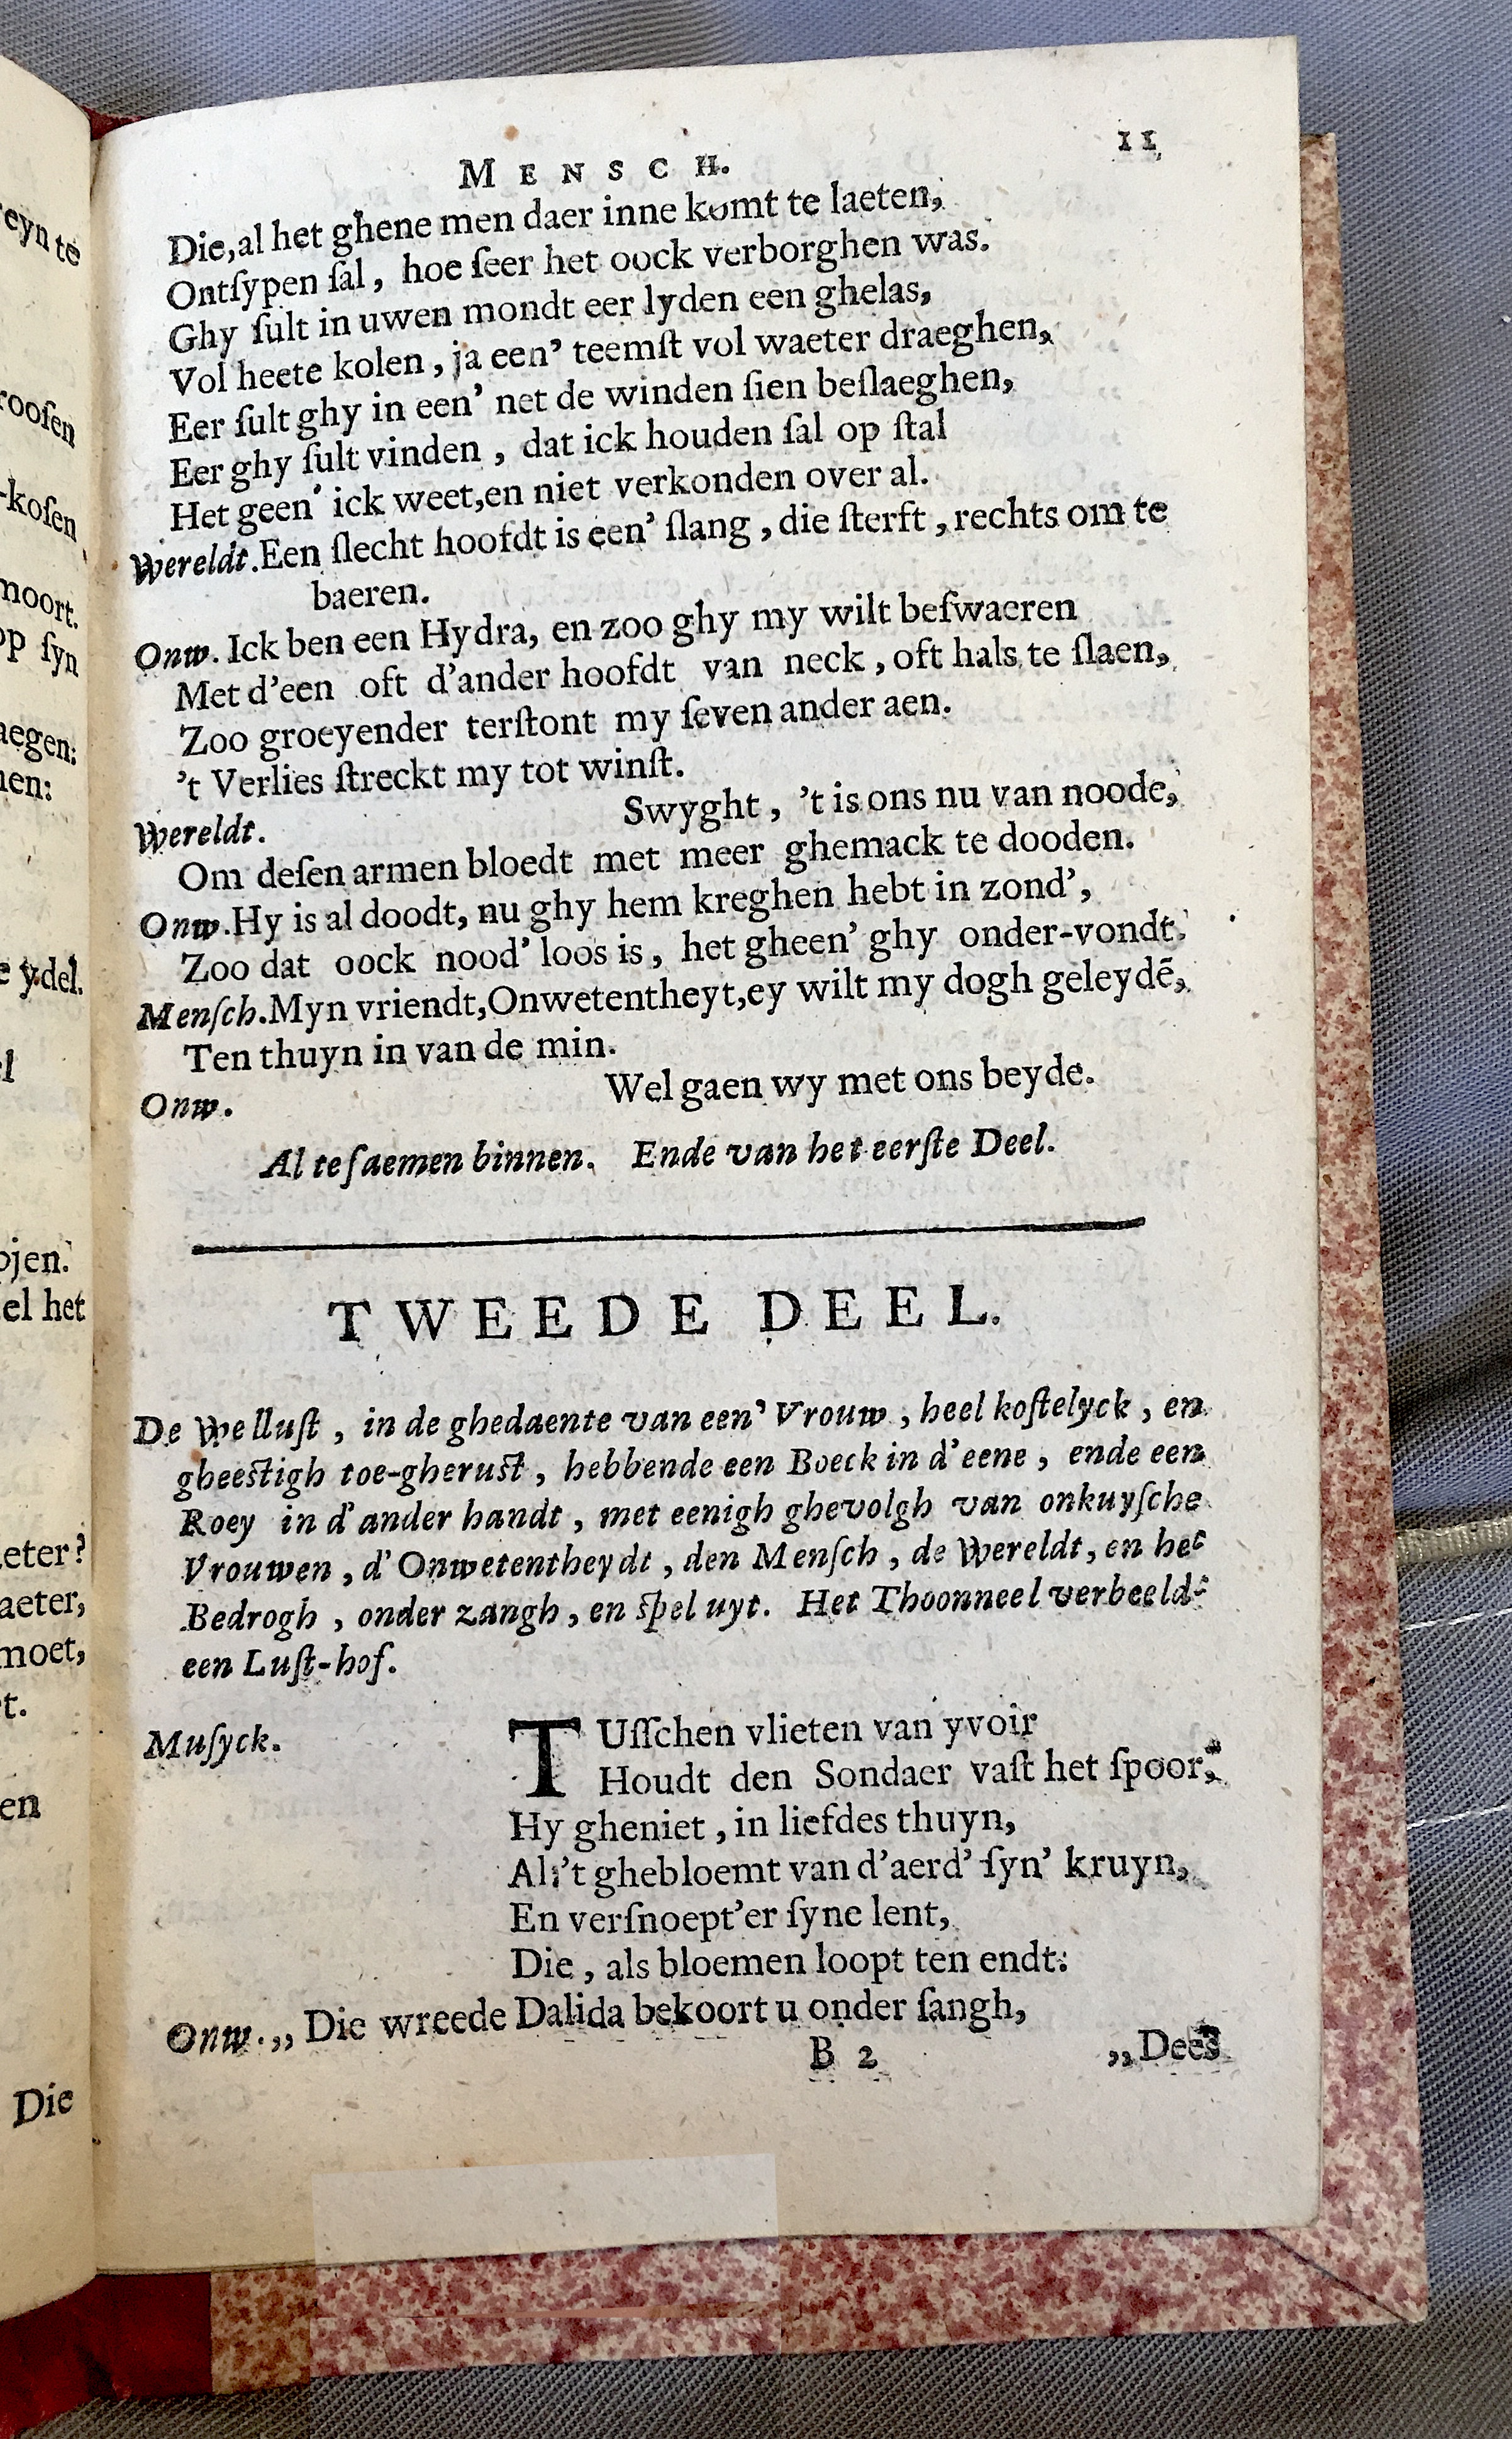 MENSCH. 11
Die, al het ghene men daer inne komt te laeten,
Ontſypen ſal, hoe ſeer het oock verborghen was.
Ghy ſult in uwen mondt eer lyden een ghelas,
Vol heete kolen, ja een' teemſt vol waeter draeghen,
Eer ſult ghy in een' net de winden ſien beſlaeghen,
Eer ghy ſult vinden, dat ick houden ſal op ſtal
Het geen' ick weet, en niet verkonden over al.
Wereldt. Een ſlecht hoofdt is een' ſlang, die ſterft, rechts om te
baeren.
Onw. Ick ben een Hydra, en zoo ghy my wilt beſwaeren
Met d'een oft d'ander hoofdt van neck, oft hals te ſlaen,
Zoo groeyender terſtont my ſeven ander aen.
't Verlies ſtreckt my tot winſt.
Wereldt. Swyght, 't is ons nu van noode,
Om deſen armen bloedt met meer ghemack te dooden.
Onw. Hy is al doodt, nu ghy hem kreghen hebt in zond',
Zoo dat oock nood' loos is, het gheen' ghy onder-vondt.
Menſch. Myn vriendt, Onwetentheyt, ey wilt my dogh geleydẽ,
Ten thuyn in van de min.
Onw. Wel gaen wy met ons beyde.
Al teſaemen binnen. Ende van het eerſte Deel.
TWEEDE DEEL.
De Welluſt, in de ghedaente van een' Vrouw, heel koſtelyck, en
gheeſtigh toe-gheruſt, hebbende een Boeck in d'eene, ende een
Roey in d'ander handt, met eenigh ghevolgh van onkuyſche
Vrouwen, d'Onwetentheydt, den Menſch, de Wereldt, en het
Bedrogh, onder zangh, en ſpel uyt. Het Thoonneel verbeeldt
een Luſt-hof.
Muſyck. TUſſchen vlieten van yvoir
Houdt den Sondaer vaſt het ſpoor,
Hy gheniet, in liefdes thuyn,
Al 't ghebloemt van d'aerd' ſyn' kruyn,
En verſnoept'er ſyne lent,
Die, als bloemen loopt ten endt:
Onw. „ Die wreede Dalida bekoort u onder ſangh,
B 2 „Dees
eyn te
rooſen
-koſen
moort.
op ſyn
aegen:
nen:
e ydel.
el
ojen.
el het
eter?
aeter,
moet,
t.
en
Die